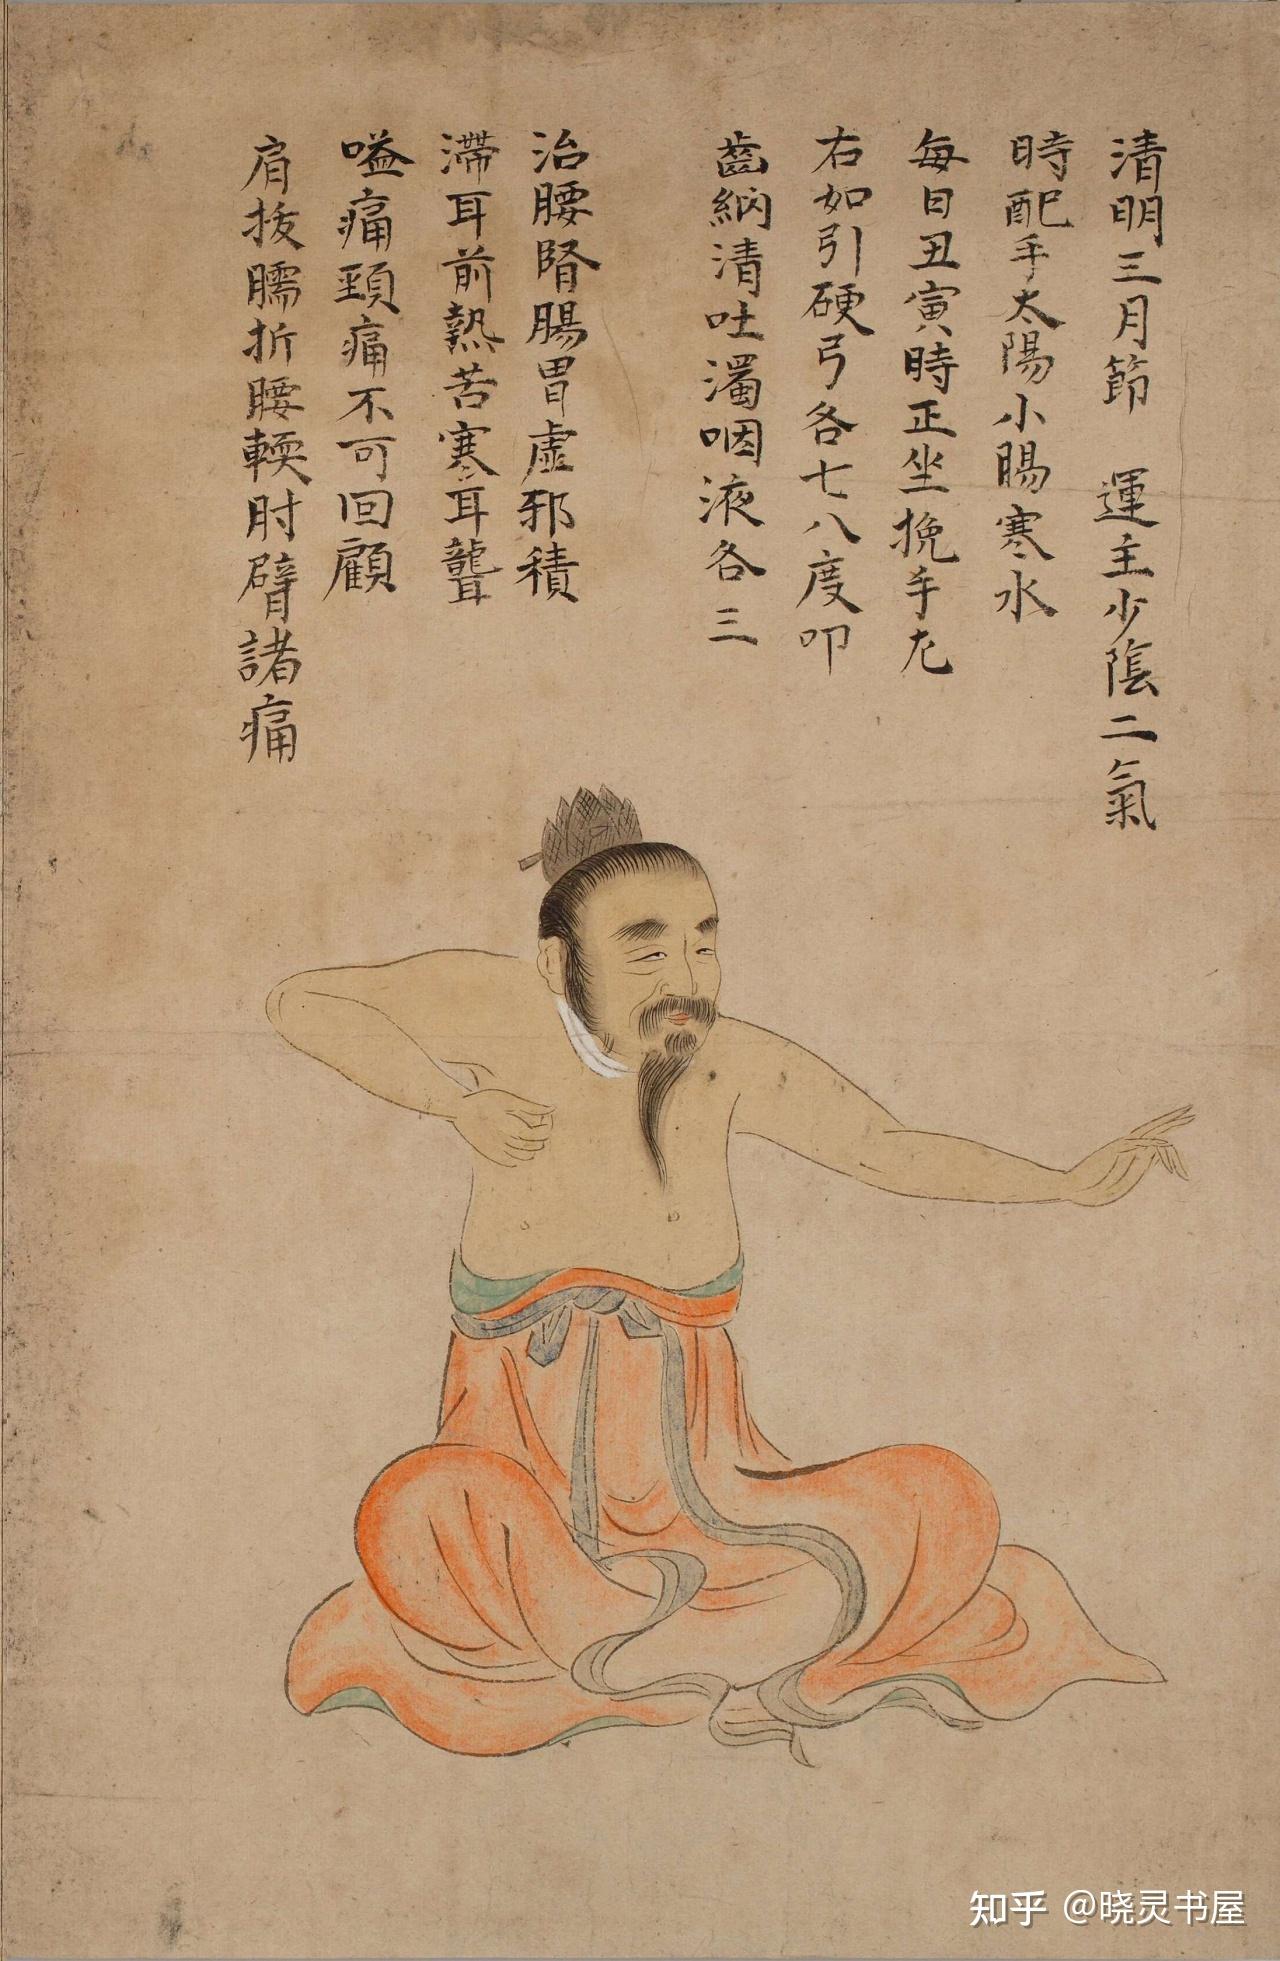 清明三月節　運主少陰二氣
時配手太陽小腸寒水
每日丑寅時正坐挽手左
右如引硬弓各七八度叩
齒納清吐濁咽液各三
治腰腎腸胃虛邪積
滯耳前熱苦寒耳聾
嗌痛頸痛不可回顧
肩拔臑折腰軟肘臂諸痛
知乎 @晓灵书屋